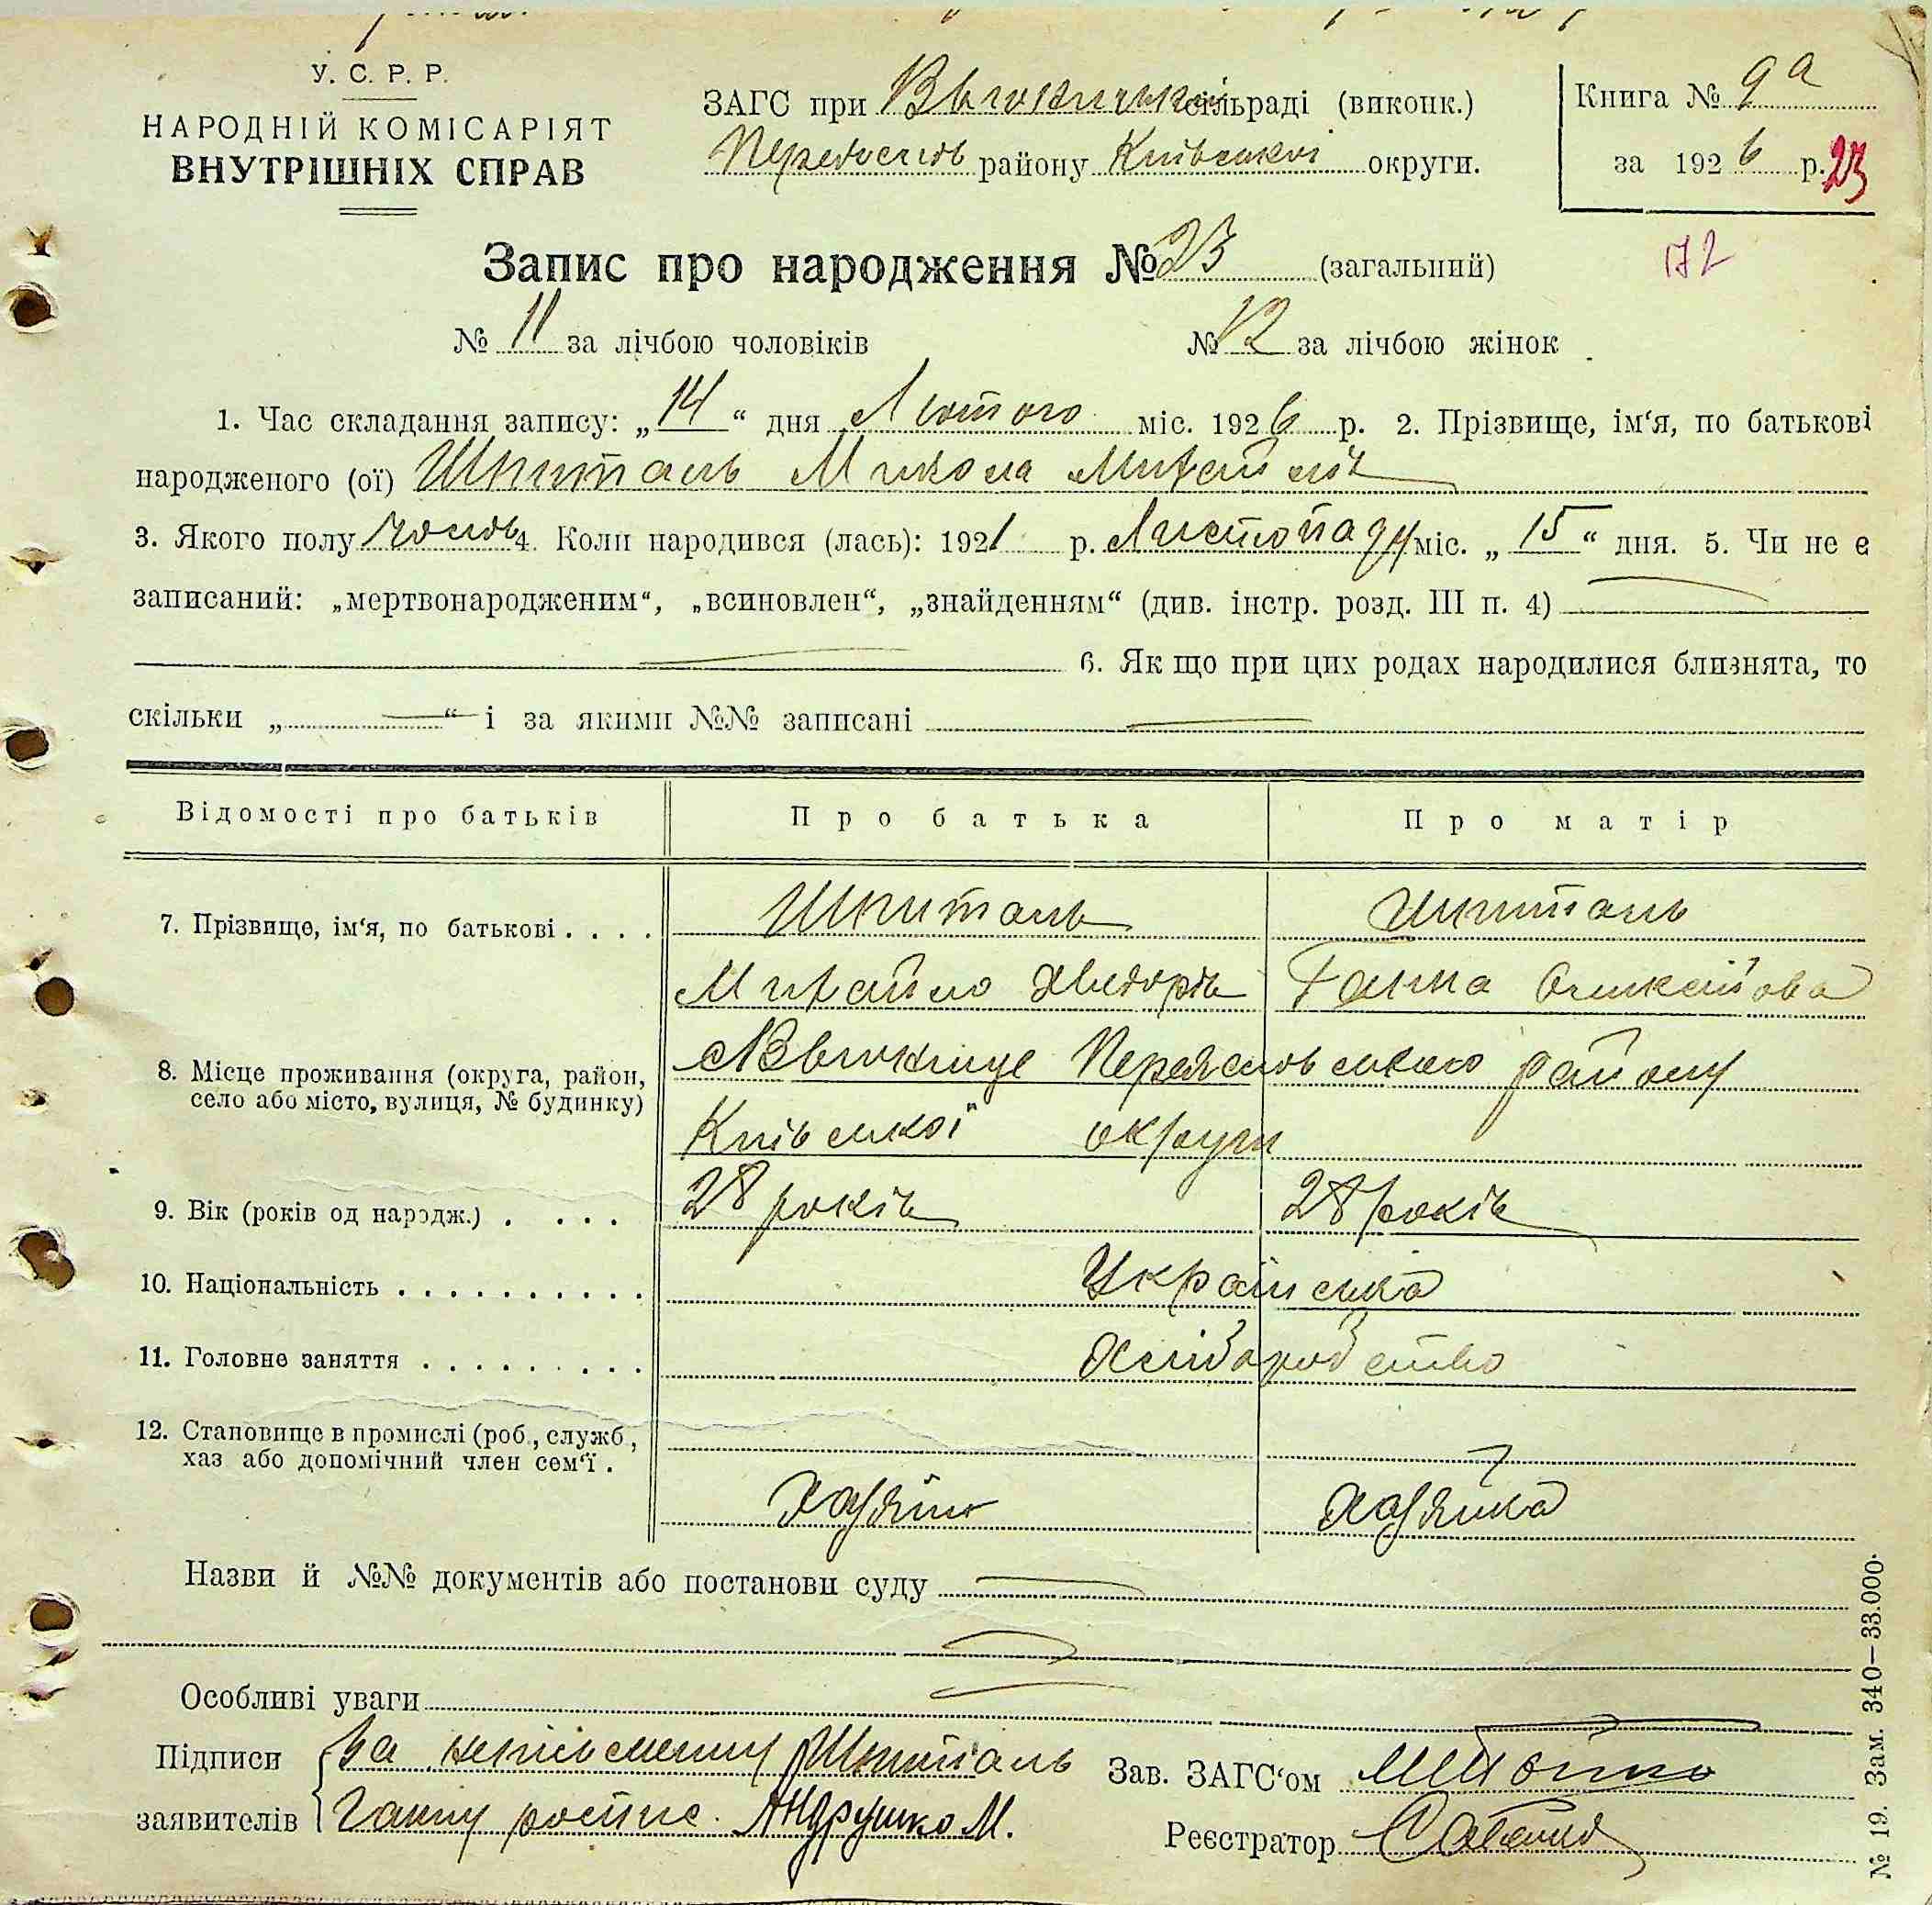 У. С. Р. Р.
НАРОДНІЙ КОМІСАРІЯТ
ВНУТРІШНІХ СПРАВ
ЗАГС при сільраді (виконк.)
району Київської округи.
Книга № 9а
за 1926 р. 23
172
Запис про народження № 23 (загальний)
№ 11 за лічбою чоловіків № 12 за лічбою жінок
1. Час складання запису: „14“ дня Лютого міс. 1926 р. 2. Прізвище, ім‘я, по батькові
народженого (ої) Шпиталь Микола Михайлів
3. Якого полу чолов. 4. Коли народився (лась): 1921 р. Листопаду міс. „15“ дня. 5. Чи не є
записаний: „мертвонародженим“, „всиновлен“, „знайденням“ (див. інстр. розд. III п. 4)
6. Як що при цих родах народилися близнята, то
скільки „—“ і за якими №№ записані
Відомості про батьків Про батька Про матір
7. Прізвище, ім‘я, по батькові . . . . Шпиталь Шпиталь
Михайло Ганна
8. Місце проживання (округа, район, району
село або місто, вулиця, № будинку) Київської округи
9. Вік (років од народж.) . . . . 28 років 28 років
10. Національність . . . . . . . . . . Українська
11. Головне заняття . . . . . . . . . Хліборобство
12. Становище в промислі (роб., служб.,
хаз або допомічний член сем‘ї . Хазяїн Хазяйка
Назви й №№ документів або постанови суду
Особливі уваги
Підписи За неписьменну Шпиталь Зав. ЗАГС‘ом
заявителів Ганну роспис. Андрушко М. Реєстратор
№ 19. Зам. 340—33.000.